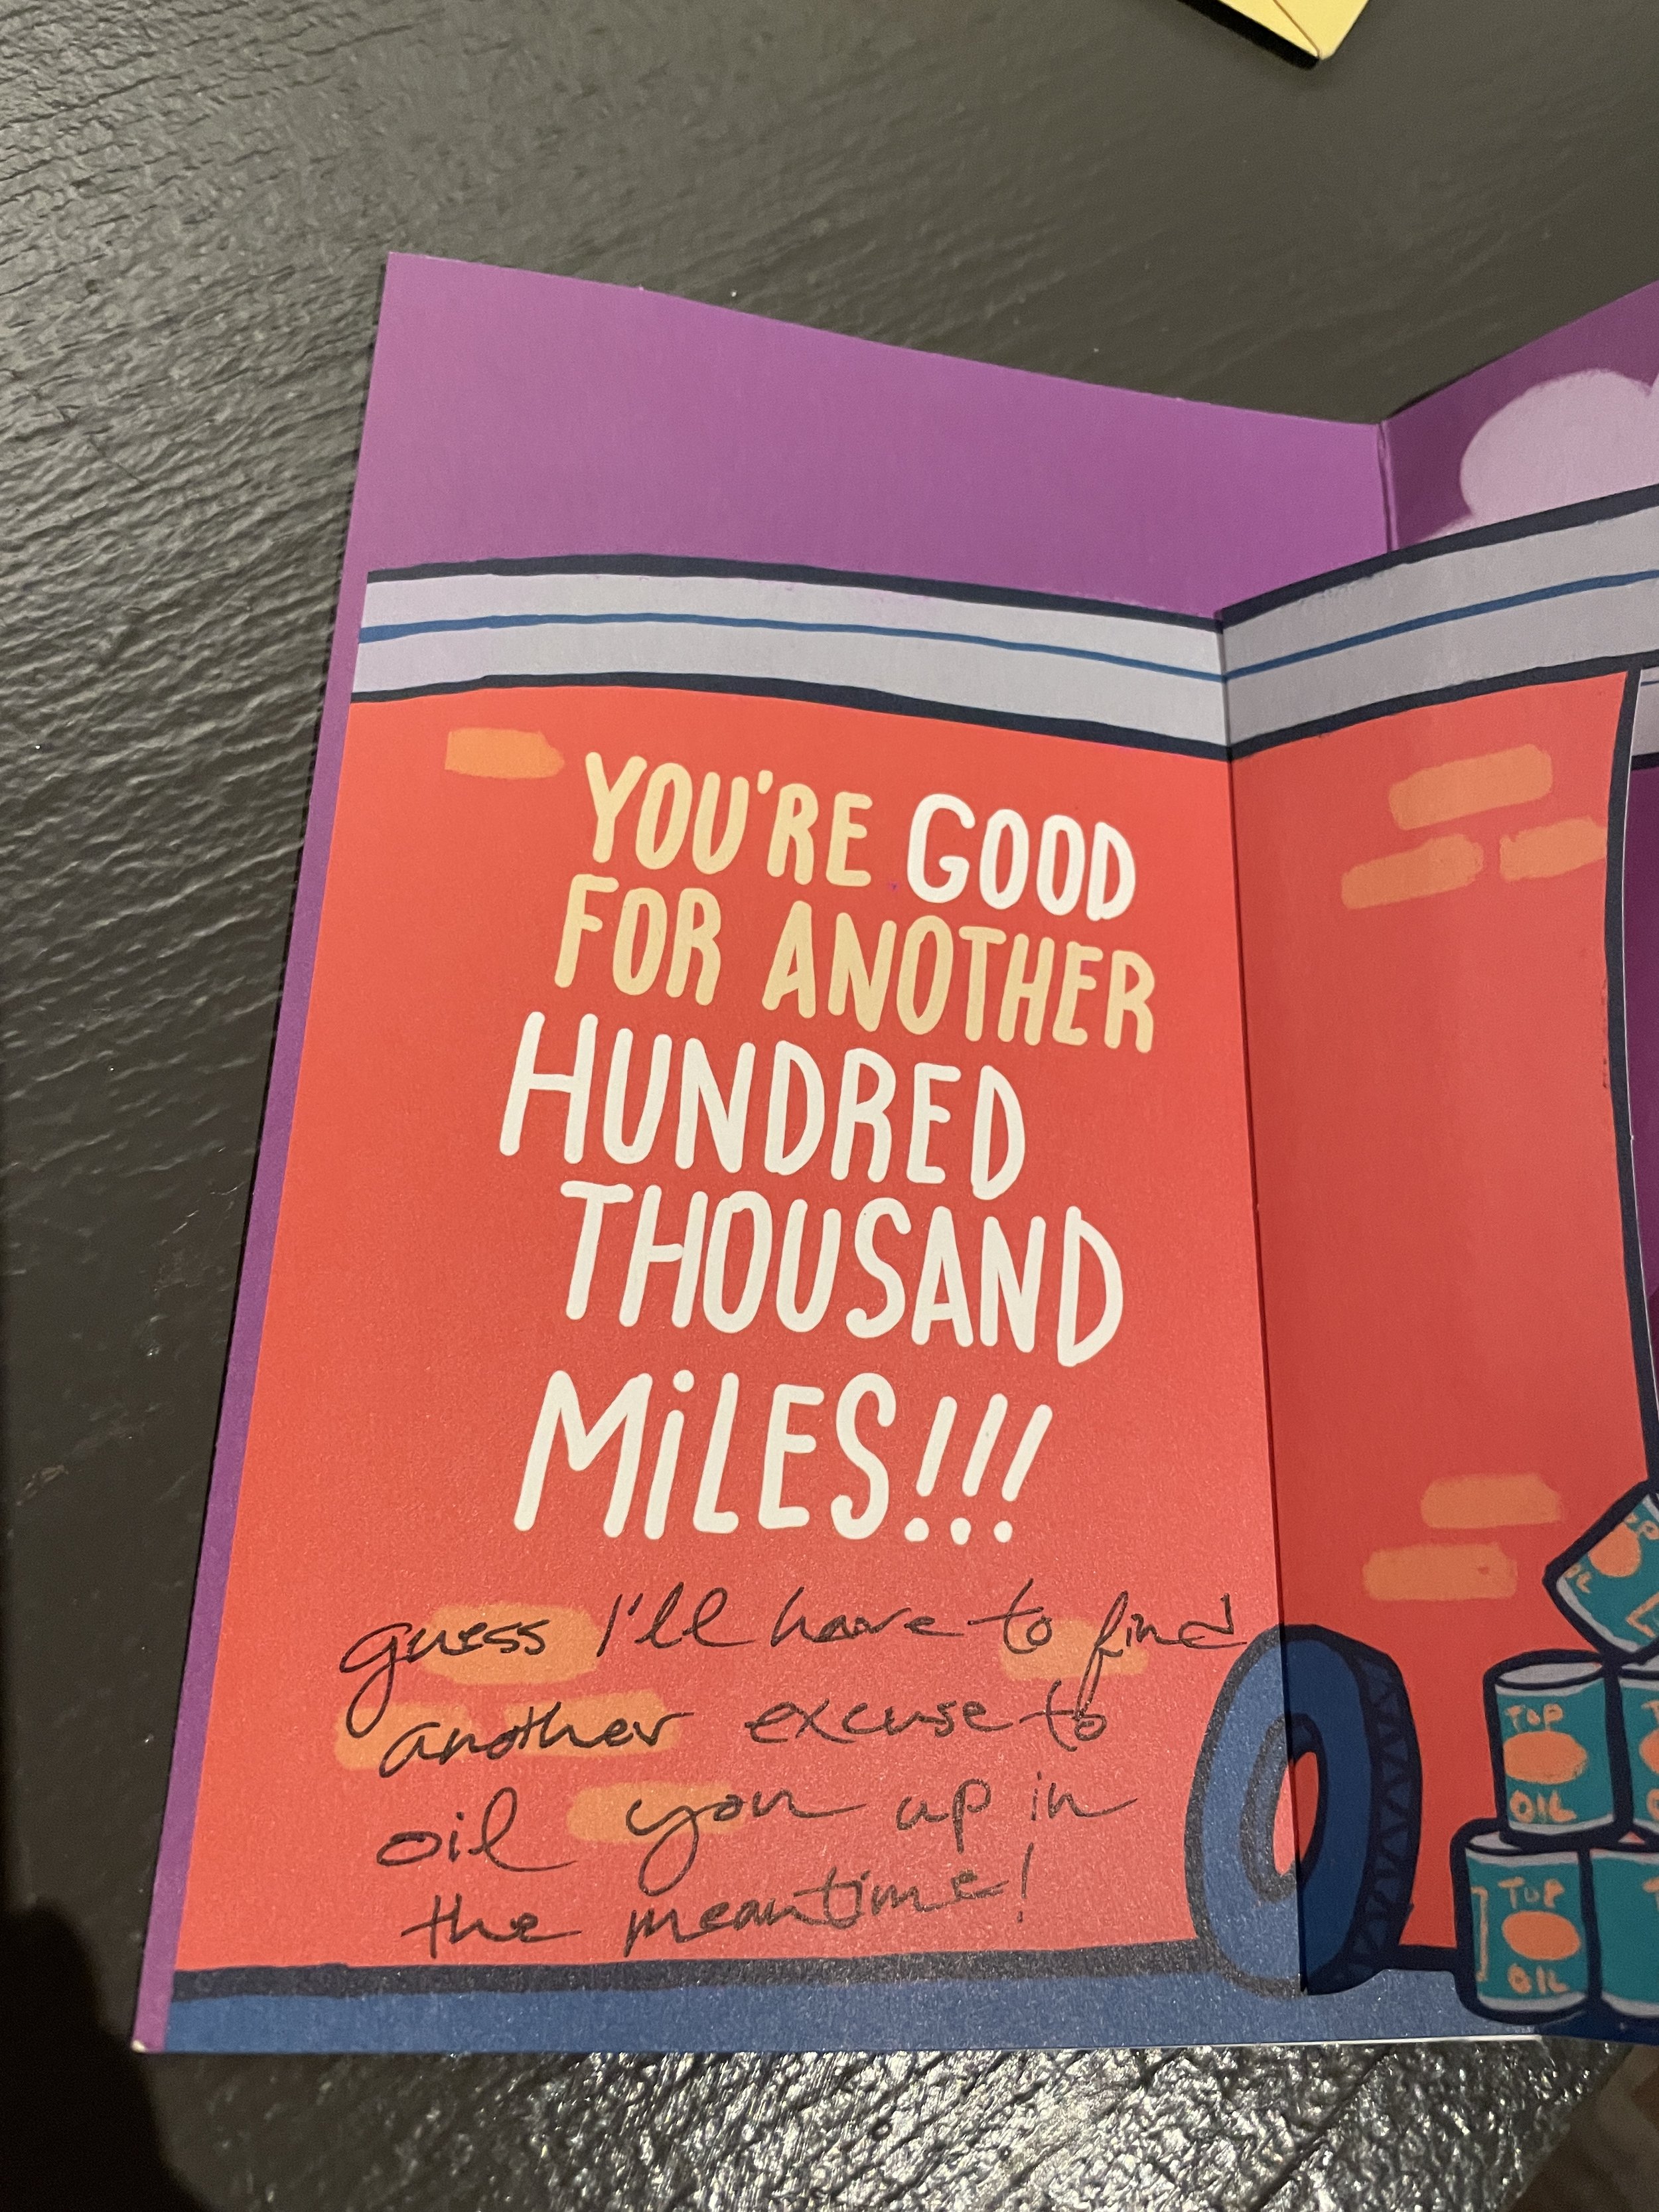 YOU'RE GOOD
FOR ANOTHER
HUNDRED
THOUSAND
MiLES!!!
guess I'll have to find
another excuse to
oil you up in
the meantime!
TOP
OIL
TOP
OIL